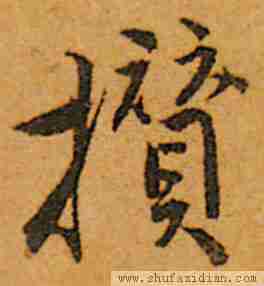 攢
www.shufazidian.com